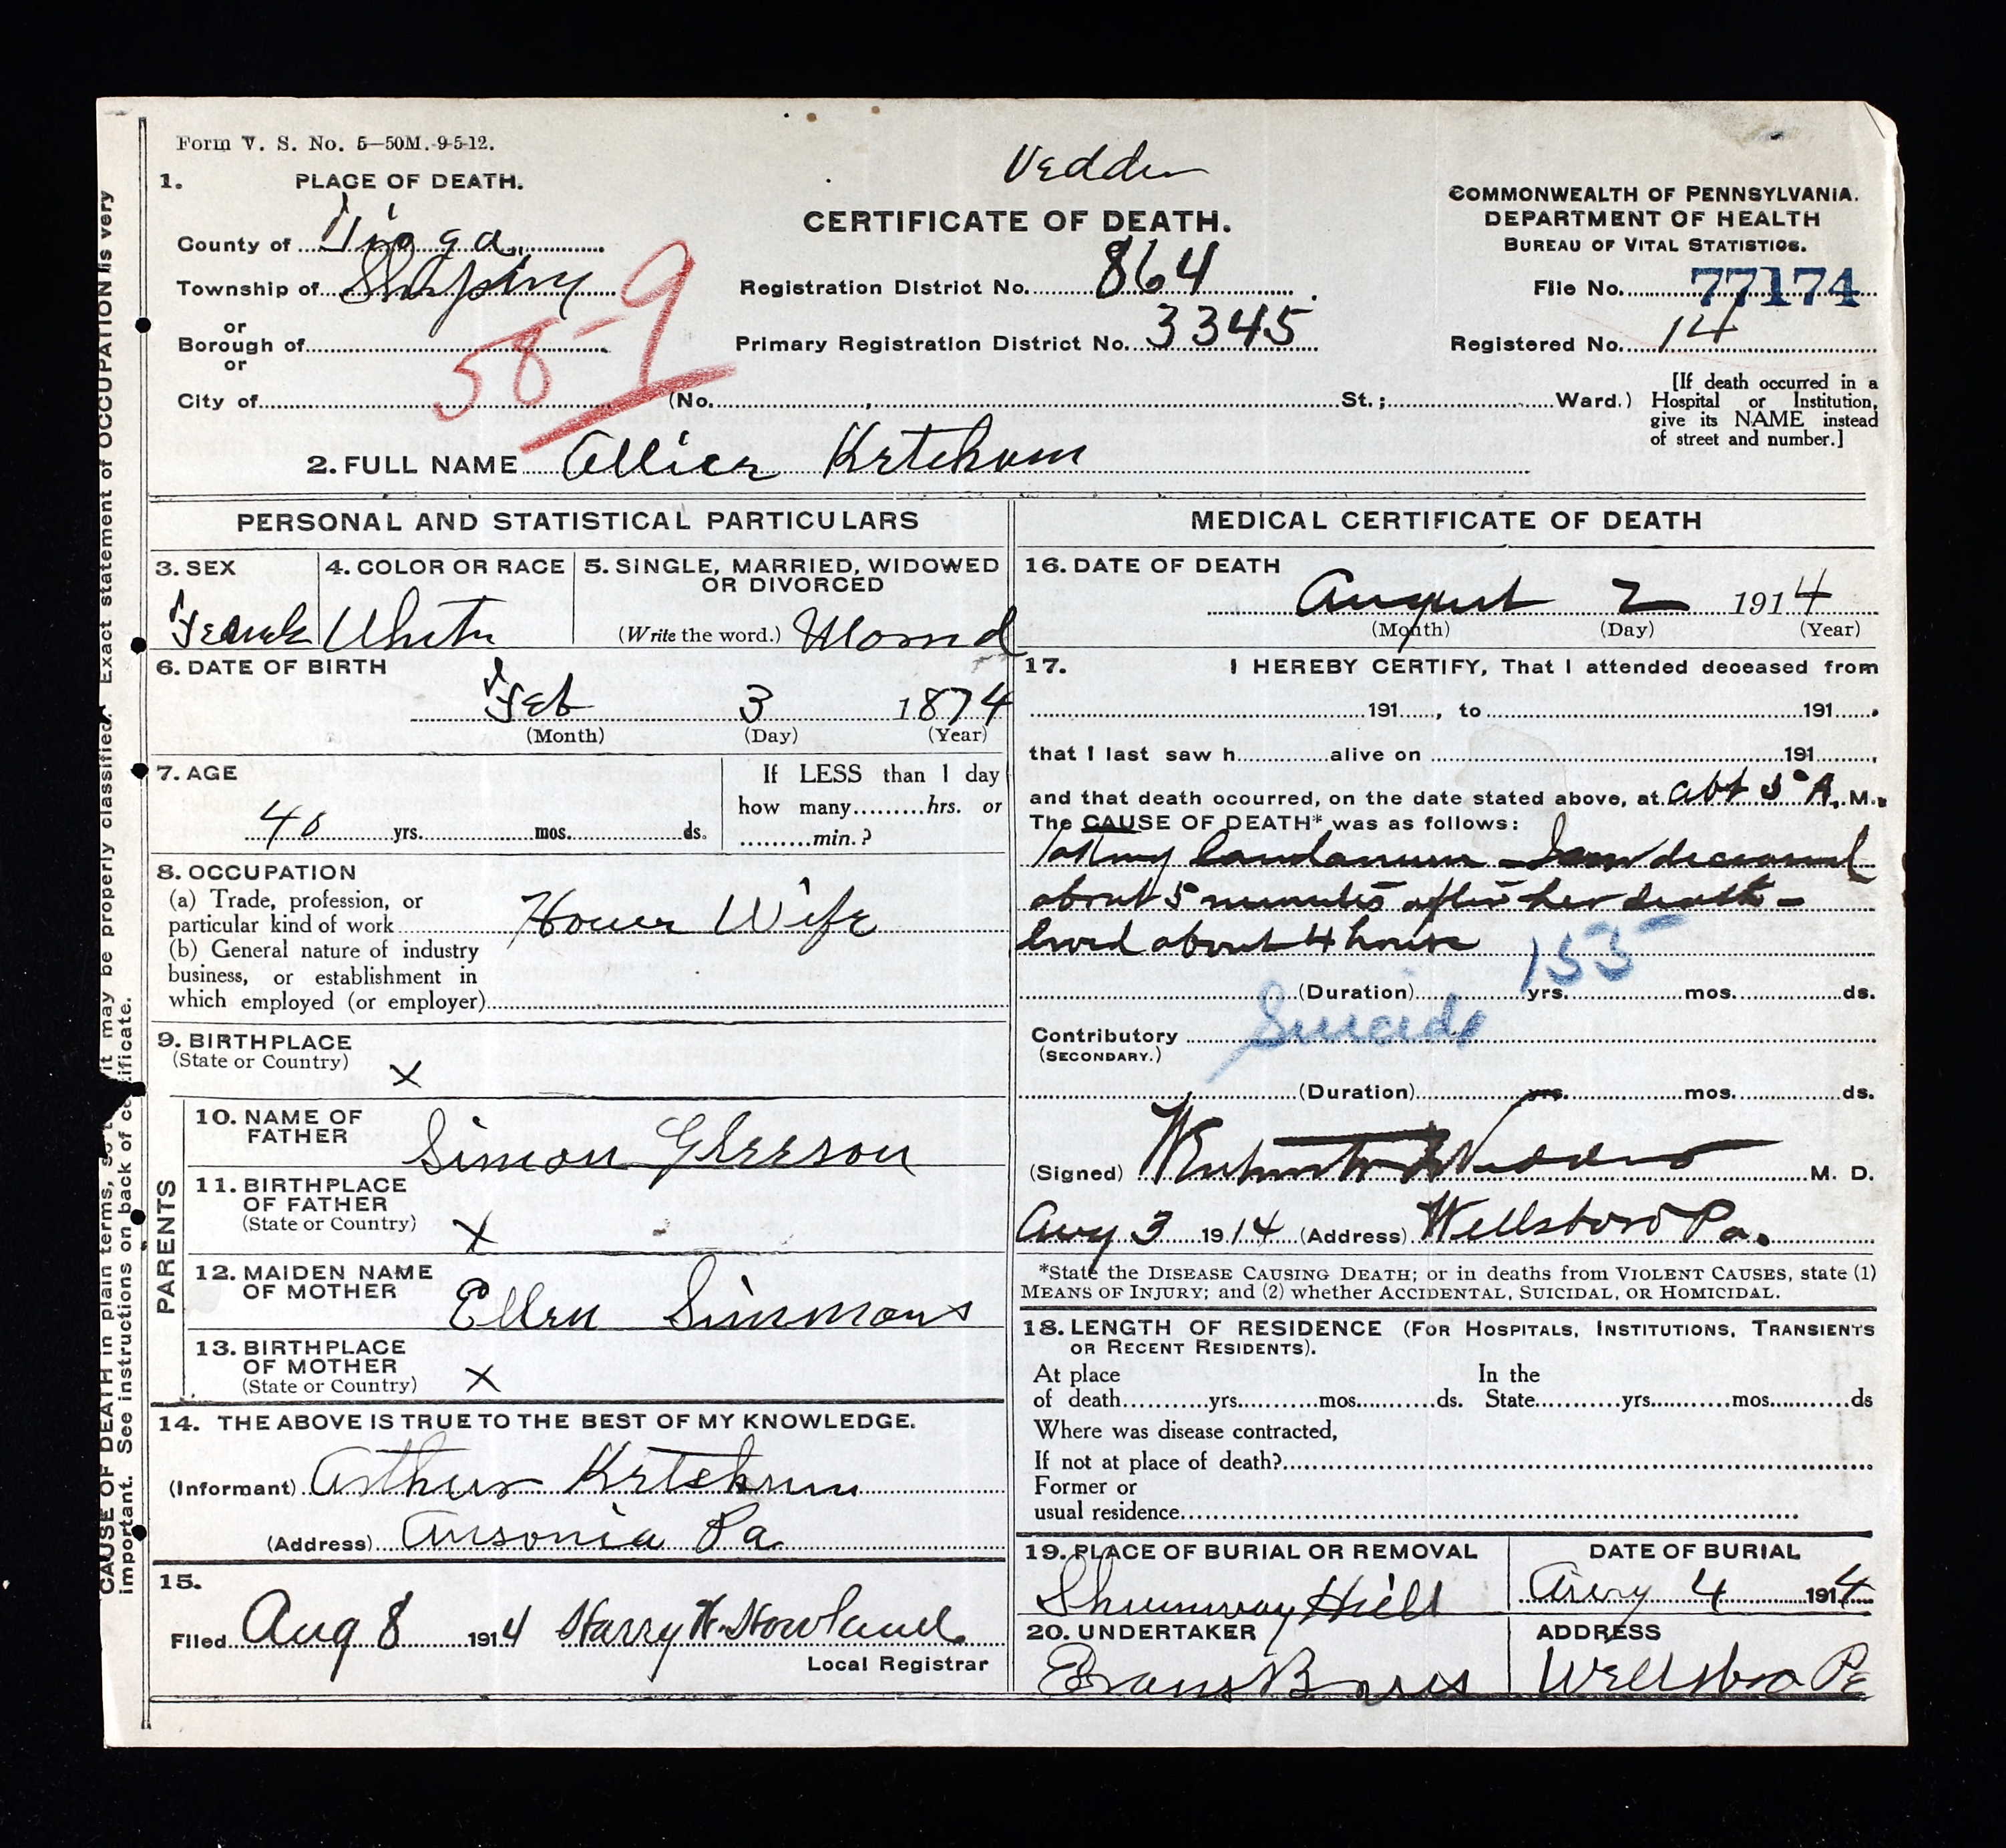 Form V. S. No. 5—50M.-9-5-12.
Vedder
1. PLACE OF DEATH.
County of Tioga
Township of Shippen
or
Borough of
or
City of
58-9
CERTIFICATE OF DEATH.
Registration District No. 864
Primary Registration District No. 3345
(No. , St.; Ward.)
COMMONWEALTH OF PENNSYLVANIA.
DEPARTMENT OF HEALTH
BUREAU OF VITAL STATISTICS.
File No. 77174
Registered No. 14
[If death occurred in a
Hospital or Institution,
give its NAME instead
of street and number.]
2. FULL NAME Allice Ketcham
PERSONAL AND STATISTICAL PARTICULARS
3. SEX
Female
4. COLOR OR RACE
White
5. SINGLE, MARRIED, WIDOWED
OR DIVORCED
(Write the word.)
6. DATE OF BIRTH
Feb 3 1874
(Month) (Day) (Year)
7. AGE
40 yrs. mos. ds.
If LESS than 1 day
how many hrs. or
min.?
8. OCCUPATION
(a) Trade, profession, or
particular kind of work House Wife
(b) General nature of industry
business, or establishment in
which employed (or employer)
9. BIRTHPLACE
(State or Country) X
PARENTS
10. NAME OF
FATHER Simon Gleeson
11. BIRTHPLACE
OF FATHER
(State or Country) X
12. MAIDEN NAME
OF MOTHER Ellen Simmons
13. BIRTHPLACE
OF MOTHER
(State or Country) X
14. THE ABOVE IS TRUE TO THE BEST OF MY KNOWLEDGE.
(Informant) Arthur Ketcham
(Address) Ansonia Pa
15.
Filed Aug 8 1914 Harry W. Howland
Local Registrar
MEDICAL CERTIFICATE OF DEATH
16. DATE OF DEATH
August 2 1914
(Month) (Day) (Year)
17. I HEREBY CERTIFY, That I attended deceased from
191 , to 191 .
that I last saw h alive on 191 ,
and that death ocourred, on the date stated above, at abt 5 A. M.
The CAUSE OF DEATH* was as follows:
Taking laudanum - Saw deceased
about 5 minutes after her death -
lived about 4 hours
155
(Duration) yrs. mos. ds.
Contributory Suicide
(SECONDARY.)
(Duration) yrs. mos. ds.
(Signed) M. D.
Aug 3 1914 (Address) Wellsboro Pa.
*State the DISEASE CAUSING DEATH; or in deaths from VIOLENT CAUSES, state (1)
MEANS OF INJURY; and (2) whether ACCIDENTAL, SUICIDAL, OR HOMICIDAL.
18. LENGTH OF RESIDENCE (FOR HOSPITALS, INSTITUTIONS, TRANSIENTS
OR RECENT RESIDENTS).
At place In the
of death yrs. mos. ds. State yrs. mos. ds
Where was disease contracted,
If not at place of death?
Former or
usual residence
19. PLACE OF BURIAL OR REMOVAL
Shumway Hill
DATE OF BURIAL
Aug 4 1914
20. UNDERTAKER
Evans
ADDRESS
Wellsboro Pa
CAUSE OF DEATH in plain terms, it may be properly classified. Exact statement of OCCUPATION is very
important. See instructions on back of certificate.